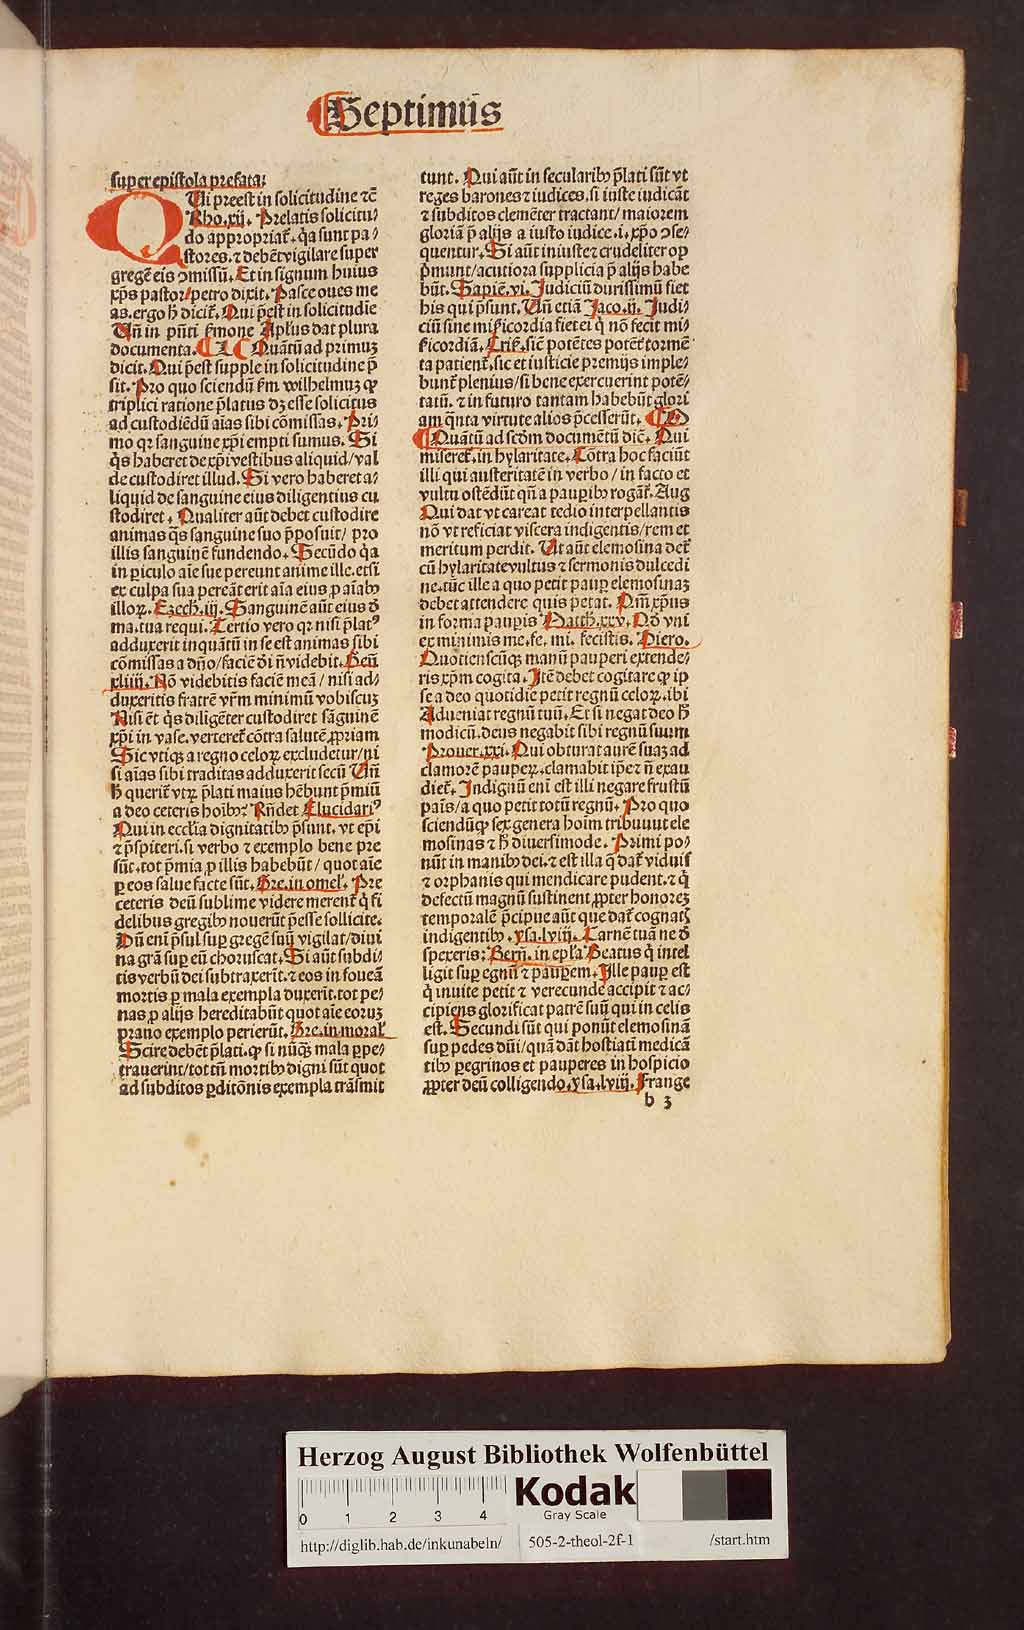 Septimus
super epistola prefata:
QUi preest in solicitudine ⁊c̄
Rho.xij. Prelatis solicitu/
do appropriat᷑. q̇a sunt pa/
stores. ⁊ debēt vigilare super
gregē eis ↄmissū. Et in signum huius
xp̄s pastor/petro dixit. Pasce oues me
as. ergo h̄ dicit᷑. Qui p̄est in solicitudīe
Un̄ in pn̄ti ẜmone Apl̄us dat plura
documenta. I Quātū ad primuꝫ
dicit. Qui p̄est supple in solicitudine p̄
sit. Pro quo sciendū ẜm wilhelmuꝫ ꝙ
triplici ratione p̄latus dꝫ esse solicitus
ad custodiēdū aīas sibi cōmissas. Pri/
mo qꝛ sanguine xp̄i empti sumus. Si
q̇s haberet de xp̄i vestibus aliquid/val
de custodiret illud. Si vero haberet a/
liquid de sanguine eius diligentius cu
stodiret. Qualiter aūt debet custodire
animas q̄s sanguine suo p̄posuit/ pro
illis sanguinē fundendo. Secūdo q̇a
in ꝑiculo aīe sue pereunt anime ille. etsi
ex culpa sua pereāt erit aīa eius ꝓ aīabꝰ
illoꝝ. Ezech.iij. Sanguinē aūt eius ð
ma.tua requi. Tertio vero qꝛ nisi p̄latꝰ
adduxerit inquātū in se est animas sibi
cōmissas a dn̄o/faciē dī n̄ videbit. Gen̄
xliiij. Nō videbitis faciē meā/ nisi ad/
duxeritis fratrē vr̄m minimū vobiscuꝫ
Nisi em̄ q̇s diligēter custodiret sāguinē
xp̄i in vase. verteret᷑ cōtra salutē ꝓpriam
Sic vtiqꝫ a regno celoꝝ excludetur/ni
si aīas sibi traditas adduxerit secū Un̄
h̄ querit᷑ vtꝝ p̄lati maius hēbunt p̄miū
a deo ceteris hoībꝰ? Rn̄det Elucidariꝰ
Qui in ecclīa dignitatibꝰ p̄sunt. vt ep̄i
⁊ p̄spiteri. si verbo ⁊ exemplo bene pre
sūt. tot p̄mia ꝓ illis habebūt/ quot aīe
ꝑ eos salue facte sūt. Gre.in omel᷑. Pre
ceteris deū sublime videre merent᷑ q̇ fi
delibus gregibꝰ nouerūt p̄esse sollicite.
Dū eni p̄sul suꝑ gregē suū vigilat/diui
na gr̄a suꝑ eū choruscat. Si aūt subdi/
tis verbū dei subtraxerīt. ⁊ eos in foueā
mortis ꝑ mala exempla duxerīt. tot pe/
nas ꝓ alijs hereditabūt quot aīe eoruꝫ
prauo exemplo perierūt. Gre.in moral᷑
Scire debēt p̄lati. ꝙ si nūq̄ꝫ mala ꝑpe/
trauerint/tot tn̄ mortibꝰ digni sūt quot
ad subditos ꝑditōnis exempla trāsmit
tunt. Qui aūt in secularibꝰ p̄lati sūt vt
reges barones ⁊ iudices. si iuste iudicāt
⁊ subditos clemēter tractant/ maiorem
gloriā p̄ alijs a iusto iudice.i.xp̄o ↄse/
quentur. Si aūt iniuste ⁊ crudeliter op
p̄munt/acutiora supplicia p̄ alijs habe
būt. Sapiē.vi. Judiciū durissimū fiet
his qui p̄sunt. Un̄ etiā Jaco.ij. Judi/
ciū sine miẜicordia fiet ei q̇ nō fecit mi/
ẜicordiā. sic̄ potētes potēt᷑ tormē
ta patient᷑. sic et iusticie premijs imple/
bunt᷑ plenius/si bene exercuerint potē/
tatū. ⁊ in futuro tantam habebūt glori
am q̄nta virtute alios p̄cesserūt.
Quātū ad scd̄m documētū dic̄. Qui
miseret᷑. in hylaritate. Cōtra hoc faciūt
illi qui austeritatē in verbo/in facto et
vultu ostēdūt qn̄ a pauꝑibꝰ rogāt᷑. Aug
Qui dat vt careat tedio interpellantis
nō vt reficiat viscera indigentis/rem et
meritum perdit. Ut aūt elemosina det᷑
cū hylaritate vultus ⁊ sermonis dulcedi
ne. tūc ille a quo petit pauꝑ elemosinaꝫ
debet attendere quis petat. Pm̄ xp̄us
in forma pauꝑis Matth.xxv. Qð vni
ex minimis me.fe.mi.fecistis. Hiero.
Quotienscūqꝫ manū pauperi extende/
ris xp̄m cogita. Itē debet cogitare ꝙ ip
se a deo quotidie petit regnū celoꝝ. ibi
Adueniat regnū tuū. Et si negat deo h̄
modicū. deus negabit sibi regnū suum
Prouer.xxi. Qui obturat aurē suaꝫ ad
clamorē pauꝑeꝝ. clamabit ip̄e ⁊ n̄ exau
diet᷑. Indignū eni est illi negare frustū
panis/a quo petit totū regnū. Pro quo
sciendū ꝙ sex genera hoīm tribuuut ele
mosinas ⁊ h̄ diuersimode. Primi po/
nūt in manibꝰ dei. ⁊ est illa q̄ dat᷑ viduis
⁊ orphanis qui mendicare pudent. ⁊ q̇
defectū magnū sustinent ꝓpter honoreꝫ
temporalē p̄cipue aūt que dat᷑ cognatꝭ
indigentibꝰ. ysa.lviij. Carnē tuā ne ð
spexeris: Bern̄.in epl̄a Beatus q̇ intel
ligit suꝑ egnū ⁊ pauꝑem. Ille pauꝑ est
q̇ inuite petit ⁊ verecunde accipit ⁊ ac/
cipiens glorificat patrē suū qui in celis
est. Secundi sūt qui ponūt elemosinā
suꝑ pedes dn̄i/quā dāt hostiatī medicā
tibꝰ ꝑegrinos et pauperes in hospicio
ꝓpter deū colligendo. ysa.lviij. Frange
b 3
Herzog August Bibliothek Wolfenbüttel
0 1 2 3 4
Kodak
Gray Scale
http://diglib.hab.de/inkunabeln/ 505-2-theol-2f-1 /start.htm